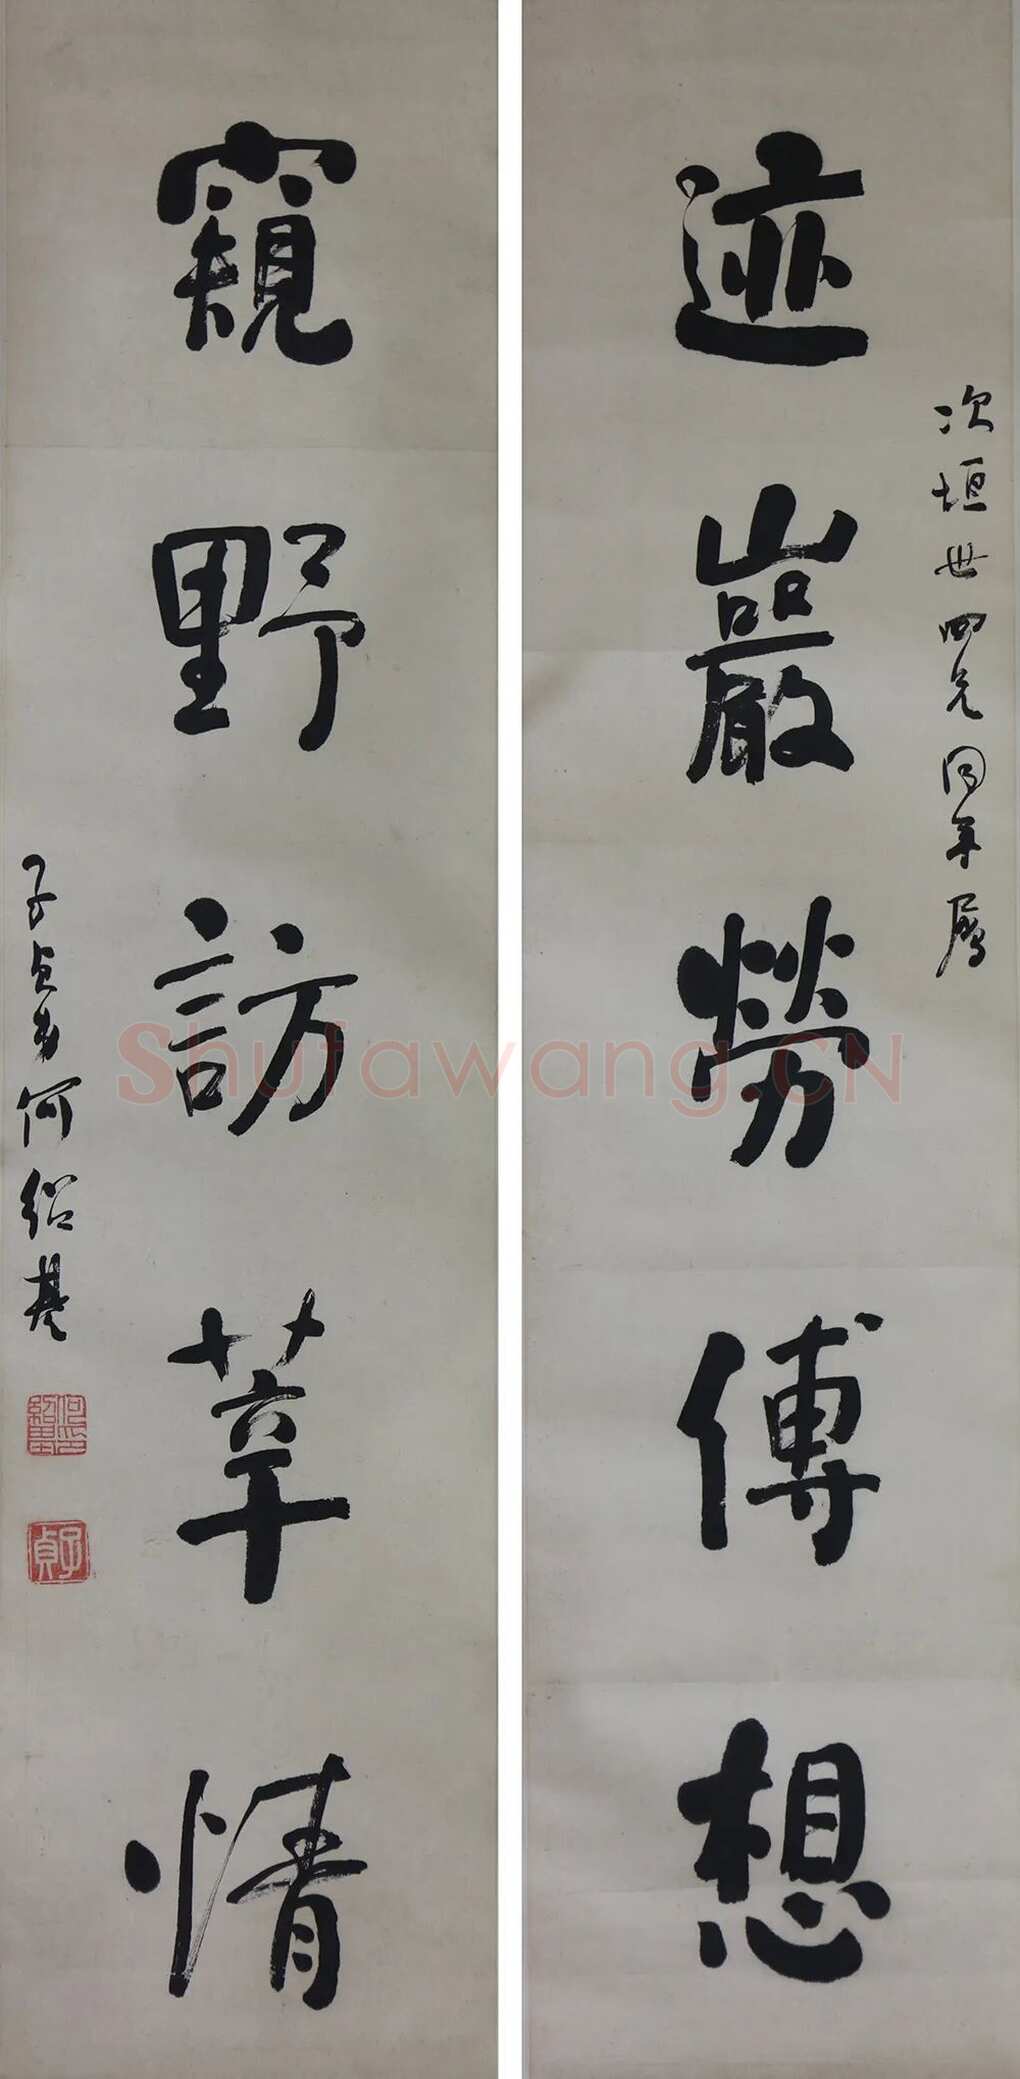 次垣世四兄同年属
迹巖勞傅想
窺野訪莘情
子貞弟何紹基
子貞
Shufawang.CN